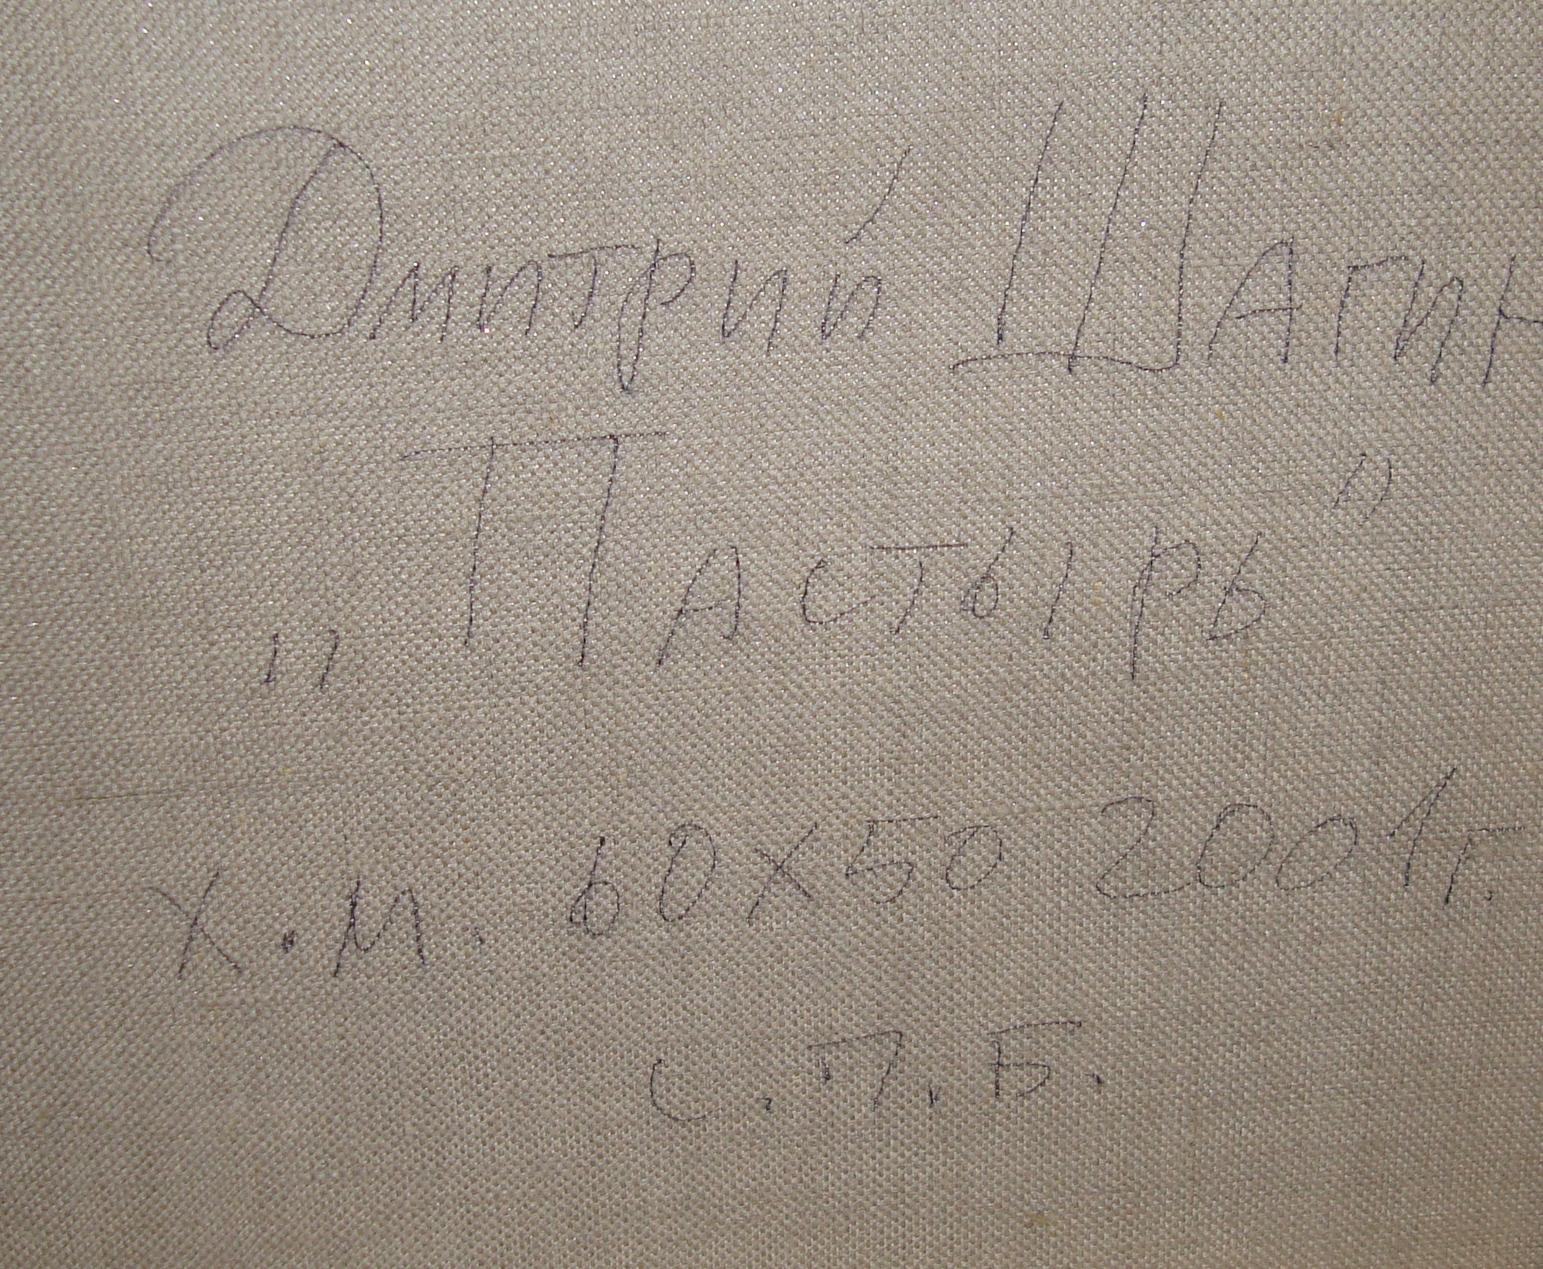 Дмитрий Шагин
„Пастырь”
х.м. 60х50 2001г.
С.П.Б.